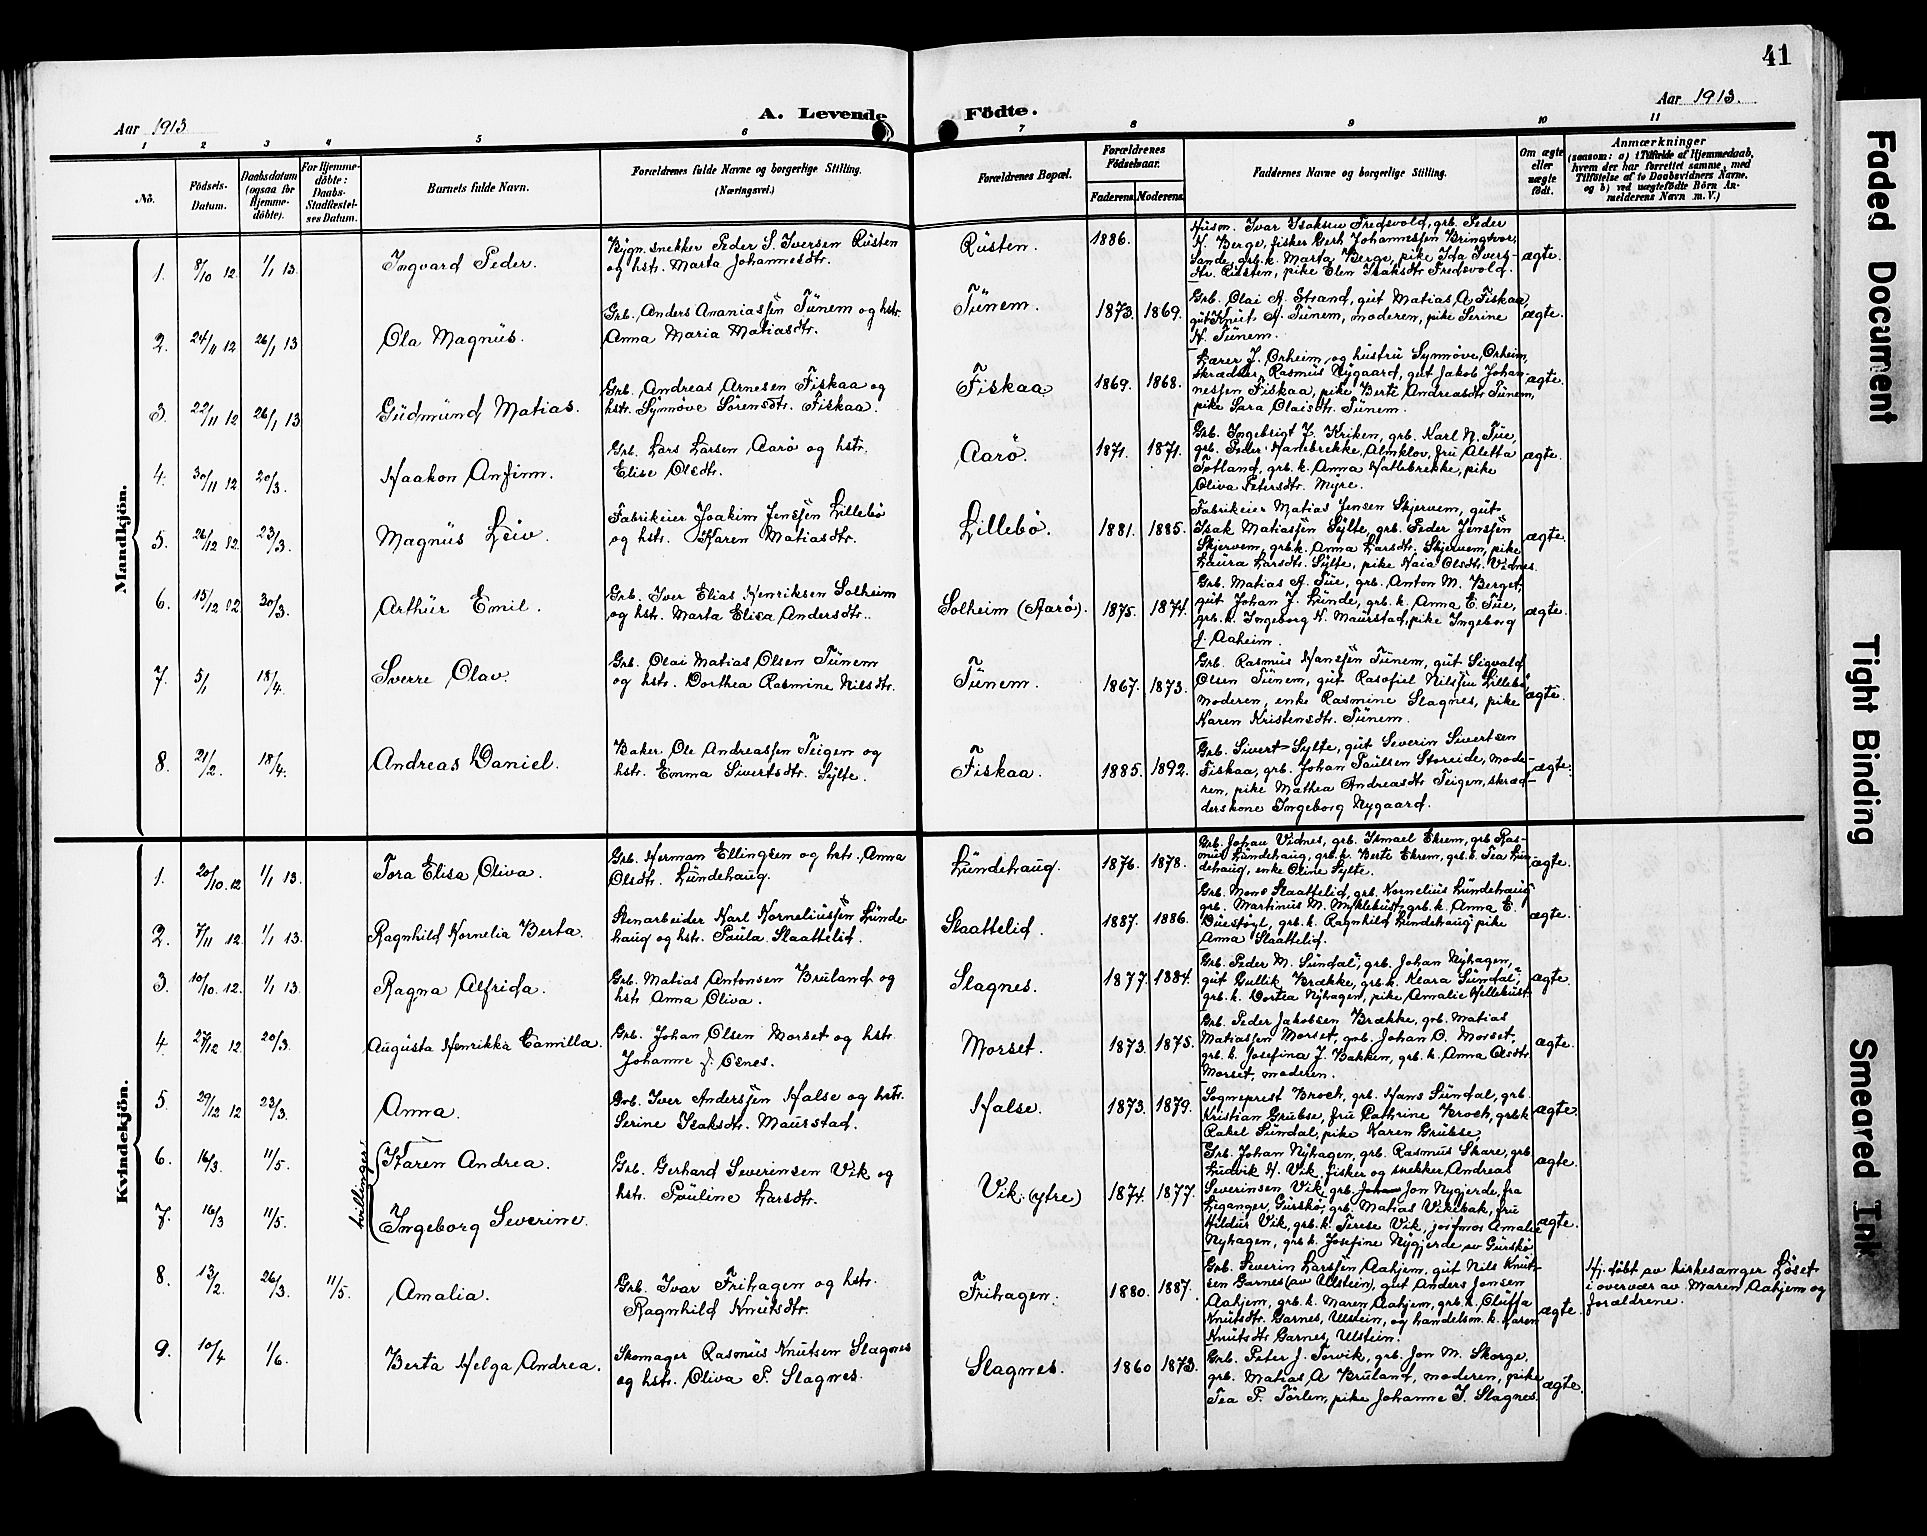 41
Aar 1913
A. Levende Födte.
Aar 1913.
1 2 3 4 5 6 7 8 9 10 11
No.
Födsels-
Datum.
Daabsdatum
(ogsaa for
Hjemme-
döbte).
For Hjemme-
döbte:
Daabs-
Stadfæstel-
ses Datum.
Barnets fulde Navn.
Forældrenes fulde Navne og borgerlige Stilling.
(Næringsvei.)
Forældrenes Bopæl.
Forældrenes
Födselsaar.
Faderens. Moderens.
Faddernes Navne og borgerlige Stilling.
Om ægte
eller
uægte
födt.
Anmærkninger
(saasom: a) i Tilfælde af Hjemmedaab,
hvem der har forrettet samme, med
Tilföielse af to Daabsvidners Navne,
og b) ved uægtefödte Börn An-
melderens Navn m. V.)
Mandkjön.
1. 8/10 12 1/1 13. Ingvard Peder.
Bygn. snekker Peder S. Iversen Rüsten
og hstr. Marta Johannesdtr.
Rüsten. 1886.
Husm. Ivar Isaksen Fredsvold, grb. Peder
N. Berge, fisker Gerh. Johannessen Bringsvor,
Sande, grb.k. Marta Berge, pike Ida Ivers-
dtr. Rüsten, pike Elen Isaksdtr Fredsvold.
ægte.
2. 24/11 12 26/1 13 Ola Magnüs.
Grb. Anders Ananiassen Tünem og hstr.
Anna Maria Matiasdtr.
Tünem. 1873. 1869.
Grb. Olai A. Strand, güt Matias A Fiskaa,
güt Knüt A. Tünem, moderen, pike Serine
N. Tünem.
ægte.
3. 22/11 12 26/1 13 Güdmünd Matias.
Grb. Andreas Arnesen Fiskaa og
hstr. Synnöve Sörensdtr. Fiskaa.
Fiskaa 1869. 1868.
Lærer J. Orheim og hustrü Synnöve Orheim,
skrædder Rasmüs Nygaard, güt Jakob Johan-
nessen Fiskaa, pike Berte Andreasdtr Tünem,
pike Sara Olaisdtr. Tünem.
ægte.
4. 30/11 12 20/3. Haakon Anfinn.
Grb. Lars Larsen Aarö og hstr.
Elise Olsdtr.
Aarö. 1871. 1871.
Grb. Ingebrigt J. Kriken, grb. Karl N. Tüe,
grb. Peder Hatlebrekke, Almklov, frü Aletta
Totland, grb. k. Anna Hatlebrekke, pike
Oliva Petersdtr. Myre.
ægte.
5. 26/12 12. 23/3. Magnüs Leiv.
Fabrikeier Joakim Jenssen Lillebö
og hstr. Karen Matiasdtr.
Lillebö. 1881. 1885.
Fabrikeier Matias Jensen Skjervem, güt
Isak Matiassen Sylte, grb. Peder Jenssen
Skjervem, grb.k. Anna Larsdtr. Skjervem, pike
Laura Larsdtr. Sylte, pike Kaia Olsdtr. Vidnes.
ægte.
6. 15/12 12 30/3. Arthür Emil.
Grb. Iver Elias Henriksen Solheim
og hstr. Marta Elisa Andersdtr.
Solheim (Aarö). 1875. 1874.
Grb. Matias A. Tüe, grb. Anton M. Berget,
güt Johan J. Lünde, grb. k. Anna E. Tüe,
grb. k. Ingeborg N. Maurstad, pike Ingeborg
J. Aaheim.
ægte.
7. 5/1 18/4. Sverre Olav.
Grb. Olai Matias Olsen Tünem
og hstr. Dorthea Rasmine Nilsdtr.
Tünem. 1867. 1873.
Grb. Rasmüs Hanssen Tünem, güt Sigvald
Olsen Tünem, güt Rasofiel Nilssen Lillebö,
moderen, enke Rasmine Slagnes, pike
Karen Kristensdtr. Tünem.
ægte.
8. 21/2. 18/4. Andreas Daniel.
Baker Ole Andreassen Teigen og
hstr. Emma Sivertsdtr. Sylte.
Fiskaa. 1885. 1892.
Grb. Sivert Sylte, güt Severin Sivertsen
Fiskaa, grb. Johan Paulsen Storeide, mode-
ren, pike Mathea Andreasdtr Teigen, skræd-
derskone Ingeborg Nygaard.
ægte.
Kvindekjön.
1. 20/10. 12 1/1 13. Tora Elisa Oliva.
Grb. Herman Ellingsen og hstr. Anna
Olsdtr. Lündehaug.
Lündehaug. 1876. 1878.
Grb. Johan Vidnes, grb. Ismael Ekrem, grb. Ras-
mus Lündehaug, grb. k. Berte Ekrem, grb. k. Tea Lün-
dehaug, enke Oline Sylte.
ægte.
2. 7/11 12. 1/1 13. Ragnhild Kornelia Berta.
Stenarbeider Karl Korneliussen Lünde-
haug og hstr. Paula Slaattelid.
Slaattelid. 1887. 1886.
Grb. Mons Slaattelid, grb. Kornelius Lündehaug
grb. Martinus M. Myklebust, grb. k. Anna E.
grb. k. Ragnhild Lündehaug pike
Anna Slaattelid.
ægte.
3. 10/10. 12. 1/1 13. Ragna Alfrida.
Grb. Matias Antonsen Bruland og
hstr Anna Oliva.
Slagnes. 1877. 1884.
Grb. Peder M. Sündal, grb. Johan Nyhagen,
güt Gullik Brække, grb. k. Klara Sündal,
grb. k. Dortea Nyhagen, pike Amalie Hellebust.
ægte.
4. 27/12 12. 20/3. Augüsta Henrikka Camilla.
Grb. Johan Olsen Morset og hstr.
Johanne J. Osnes.
Morset. 1873. 1875.
Grb. Peder Jakobsen Brække, grb. Matias
Matiassen Morset, grb. Johan O. Morset,
grb. k. Josefina J. Bakken, grb. k. Anna Olsdtr.
Morset, moderen.
ægte.
5. 29/12 12 23/3. Anna.
Grb. Iver Anderssen Halse og hstr.
Serine Isaksdtr. Maurstad.
Halse. 1873. 1879.
Sogneprest Broch, grb. Hans Sündal, grb.
Kristian Grubse, frü Cathrine Broch, grb.k
Rakel Sündal, pike Karen Grübse.
ægte.
tvillinger.
6. 16/3. 11/5. Karen Andrea.
Grb. Gerhard Severinsen Vik og
hstr. Pauline Larsdtr.
Vik (ytre) 1874. 1877.
7. 16/3 11/5. Ingeborg Severine.
Grb. Johan Nyhagen, grb. Rasmüs Skare, grb.
Ludvik H. Vik, fisker og snekker Andreas
Severinsen Vik, grb. Johan Jon Nygjerde, fra
Leganger, Gürskö, grb. Matias Vikebak, frü
Hildur Vik, grb. k. Terese Vik, jorfmor Amalie
Nyhagen, grb. k. Josefine Nygjerde av Gürskö
ægte.
ægte.
8. 13/2. 26/3. 11/5. Amalia.
Grb. Ivar Frihagen og hstr.
Ragnhild Knütsdtr.
Frihagen. 1880. 1887.
Grb. Severin Larssen Aahjem, güt Nils Knüt-
sen Garnes (av Ulstein), güt Anders Jonsen
Aahjem, grb. k. Maren Aahjem, grb. k. Oluffa
Knütsdtr. Garnes, Ulstein, og handelsm. k. Karen
Knütsdtr Garnes, Ulstein.
ægte.
Hj. döbt av kirkesanger Löset
i overvær av Maren Aahjem og
forældrene.
9. 10/4 1/6. Berta Helga Andrea.
Skomager Rasmüs Knütsen Slagnes
og hstr. Oliva P. Slagnes.
Slagnes. 1860 1873.
Grb. Peter J. Torvik, grb. Jon M. Skorge,
grb. Matias A Bruland, moderen, pike
Tea P. Törlen, pike Johanne I. Slagnes.
ægte.
Faded Document
Tight Binding
Smeared Ink